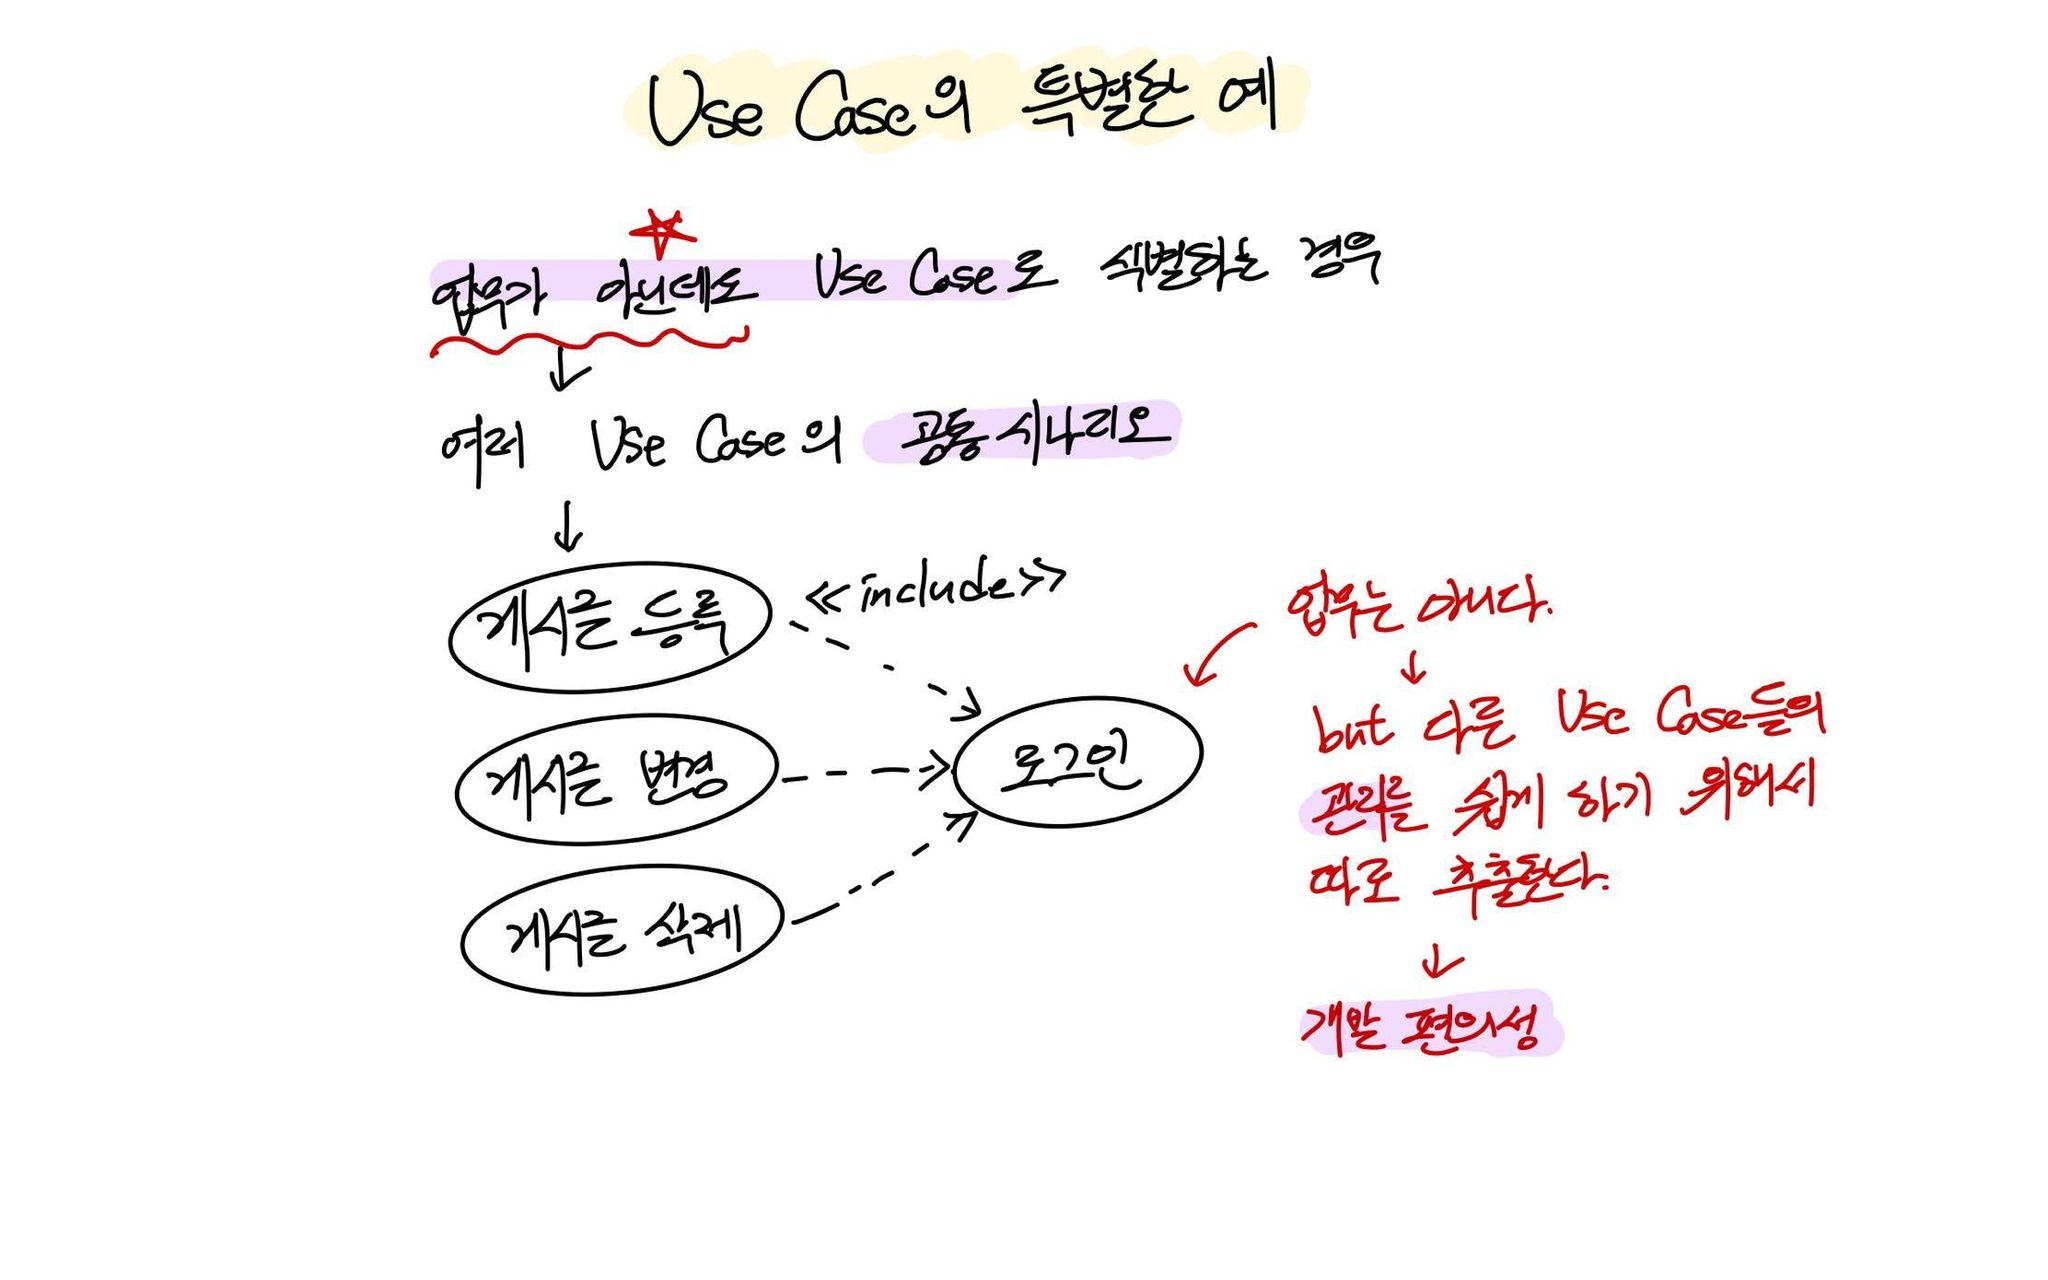 Use Case의 특별한 예
업무가 아닌데도 Use Case로 식별하는 경우
여러 Use Case의 공통 시나리오
게시글 등록
<<include>>
게시글 변경
게시글 삭제
로그인
업무는 아니다.
but 다른 Use Case들의
관리를 쉽게 하기 위해서
따로 추출한다.
개발 편의성